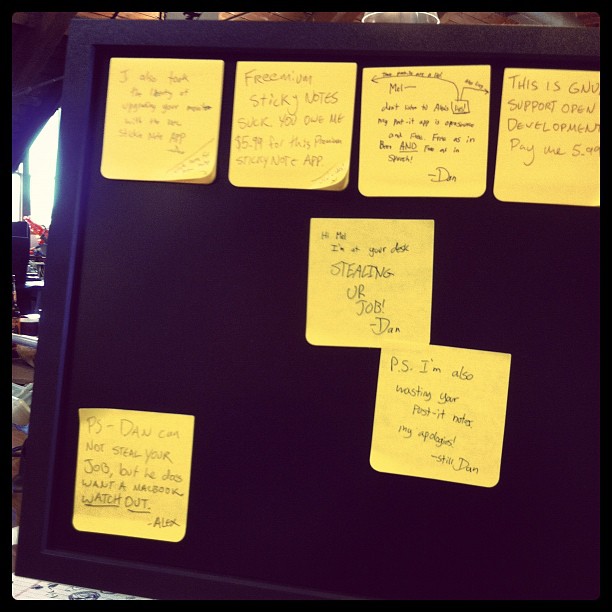 I also took
the liberty of
upgrading your monitor
with the
sticky Note APP
Freemium
Sticky NOTES
SUCK. YOU OWE ME
$5.99 for this Premium
STICKY NOTE APP.
Mel—
don't listen to Alex's lies!
my post-it app is opensource
and Free. Free as in
Beer AND Free as in
Speech!
-Dan
THIS IS GNU
SUPPORT OPEN
DEVELOPMENT
Pay me 5.99
Hi Mel
I'm at your desk
STEALING
UR
JOB!
-Dan
P.S. I'm also
wasting your
Post-it notes,
my apologies!
-still Dan
PS - DAN can
NOT STEAL YOUR
JOB, but he does
WANT A MACBOOK.
WATCH OUT.
-ALEX